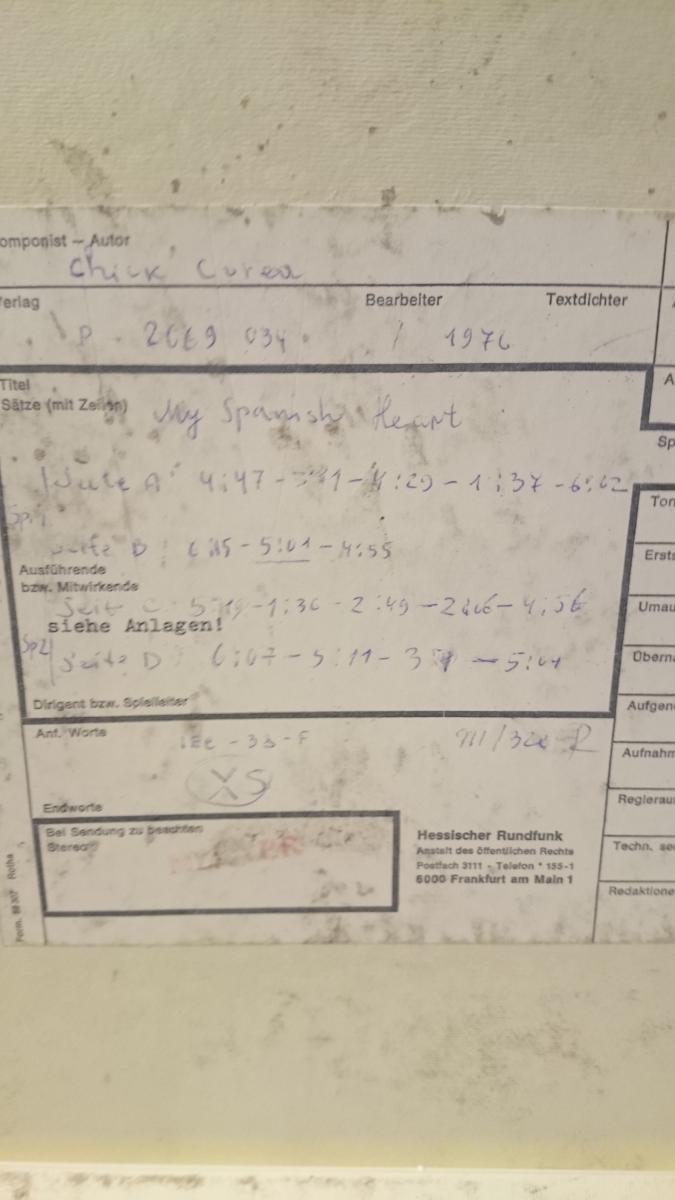 omponist – Autor
Chick Corea
erlag
Bearbeiter
Textdichter
P. 2669 034
/ 1976
Titel
Sätze (mit Zeiten)
My Spanish Heart
Seite A 4:47 - - 4:29 - 1:37 - 6:02
Sp1
Seite B : 6:15 - 5:01 - 4:55
Ausführende
bzw. Mitwirkende
Seite C 5:19 - 1:36 - 2:49 - 2:06 - 4:56
siehe Anlagen!
Sp2
Seite D : 6:07 - 5:11 - - 5:01
Dirigent bzw. Spielleiter
Anf. Worte
IEC - 33 - F
XS
Endworte
Bei Sendung zu beachten
Stereo
Hessischer Rundfunk
Anstalt des öffentlichen Rechts
Postfach 3111 - Telefon * 155-1
6000 Frankfurt am Main 1
Form. Rotha
A
Sp
Ton
Erst
Umau
Übern
Aufgen
Aufnahm
Regierau
Techn. se
Redaktione